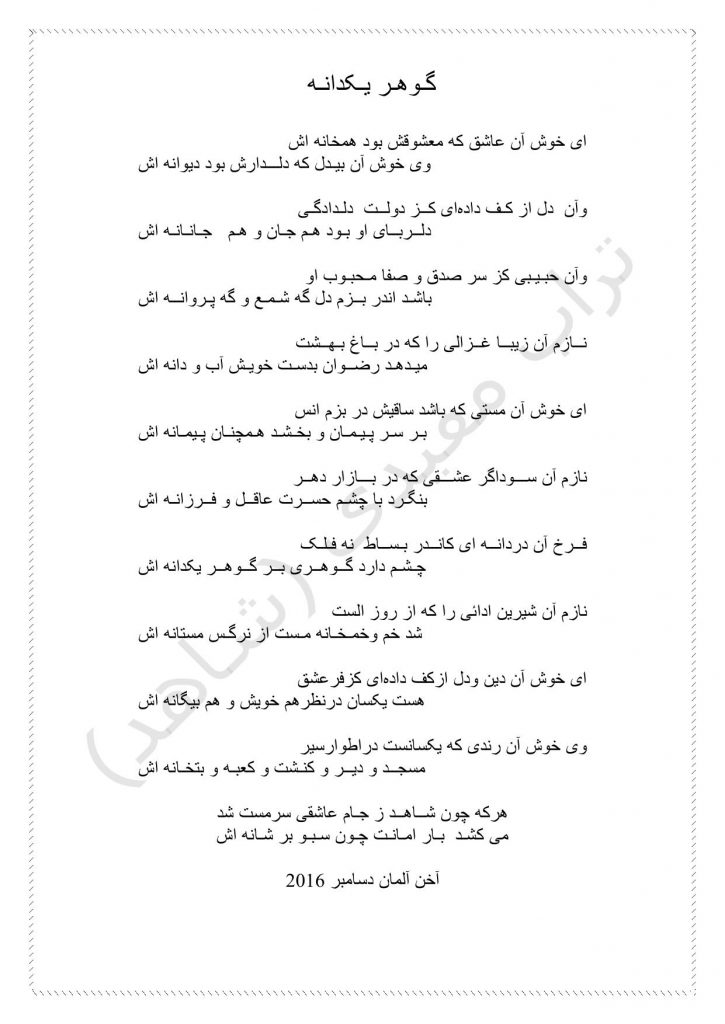 گوهر یکدانه
ای خوش آن عاشق که معشوقش بود همخانه اش
وی خوش آن بیدل که دلدارش بود دیوانه اش
وآن دل از کف داده‌ای کز دولت دلدادگی
دلربای او بود هم جان و هم جانانه اش
وآن حبیبی کز سر صدق و صفا محبوب او
باشد اندر بزم دل گه شمع و گه پروانه اش
نازم آن زیبا غزالی را که در باغ بهشت
میدهد رضوان بدست خویش آب و دانه اش
ای خوش آن مستی که باشد ساقیش در بزم انس
بر سر پیمان و بخشد همچنان پیمانه اش
نازم آن سوداگر عشقی که در بازار دهر
بنگرد با چشم حسرت عاقل و فرزانه اش
فرخ آن دردانه ای کاندر بساط نه فلک
چشم دارد گوهری بر گوهر یکدانه اش
نازم آن شیرین ادائی را که از روز الست
شد خم وخمخانه مست از نرگس مستانه اش
ای خوش آن دین ودل ازکف داده‌ای کزفرعشق
هست یکسان درنظرهم خویش و هم بیگانه اش
وی خوش آن رندی که یکسانست دراطوارسیر
مسجد و دیر و کنشت و کعبه و بتخانه اش
هرکه چون شاهد ز جام عاشقی سرمست شد
می کشد بار امانت چون سبو بر شانه اش
آخن آلمان دسامبر 2016
تراب مفیدی (شاهد)